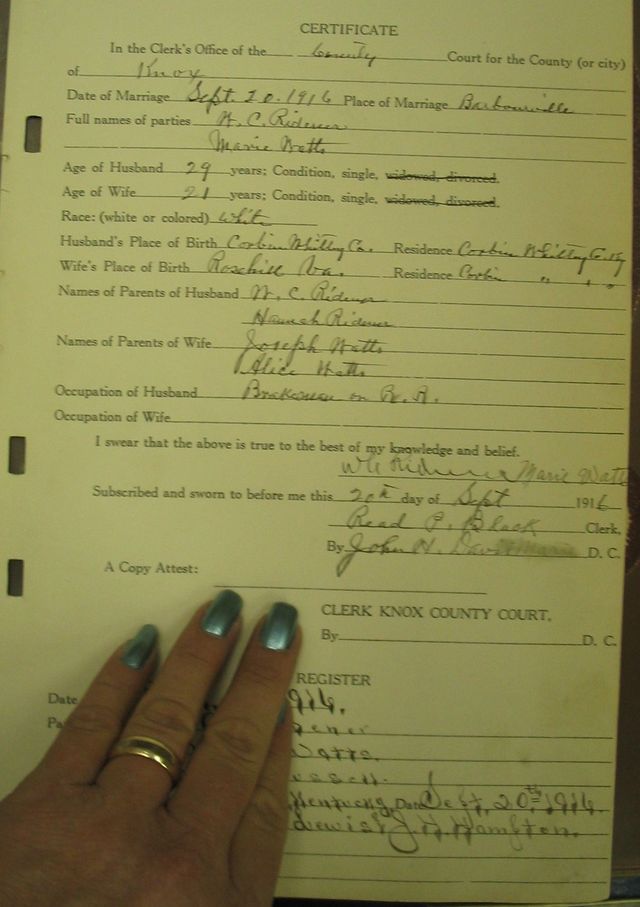 CERTIFICATE
In the Clerk's Office of the County Court for the County (or city)
of Knox
Date of Marriage Sept. 20. 1916 Place of Marriage Barbourville
Full names of parties W. C. Ridener
Marie Watts
Age of Husband 29 years; Condition, single, widowed, divorced.
Age of Wife 21 years; Condition, single, widowed, divorced.
Race: (white or colored) White
Husband's Place of Birth Corbin Whitley Co. Residence Corbin Whitley Co. Ky
Wife's Place of Birth Rosehill Va. Residence Corbin " " "
Names of Parents of Husband W. C. Ridener
Hannah Ridener
Names of Parents of Wife Joseph Watts
Alice Watts
Occupation of Husband Brakeman on R. R.
Occupation of Wife
I swear that the above is true to the best of my knowledge and belief.
W C Ridener Marie Watts
Subscribed and sworn to before me this 20th day of Sept 1916
Read P. Black Clerk,
By John H. Davis D. C.
A Copy Attest:
CLERK KNOX COUNTY COURT.
By D. C.
REGISTER
Date 916.
Pa dener
Watts.
Kentucky, Date Sept. 20th 1916.
Lewis J. H. Hampton.